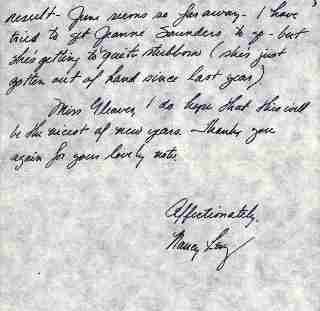 result - June seems so far away - I have
tried to get Jeanne Saunders to go - but
she's getting to quite stubborn (she's just
gotten out of hand since last year).
Miss Cleaver, I do hope that this will
be the nicest of new years. Thank you
again for your lovely note.
Affectionately,
Nancy